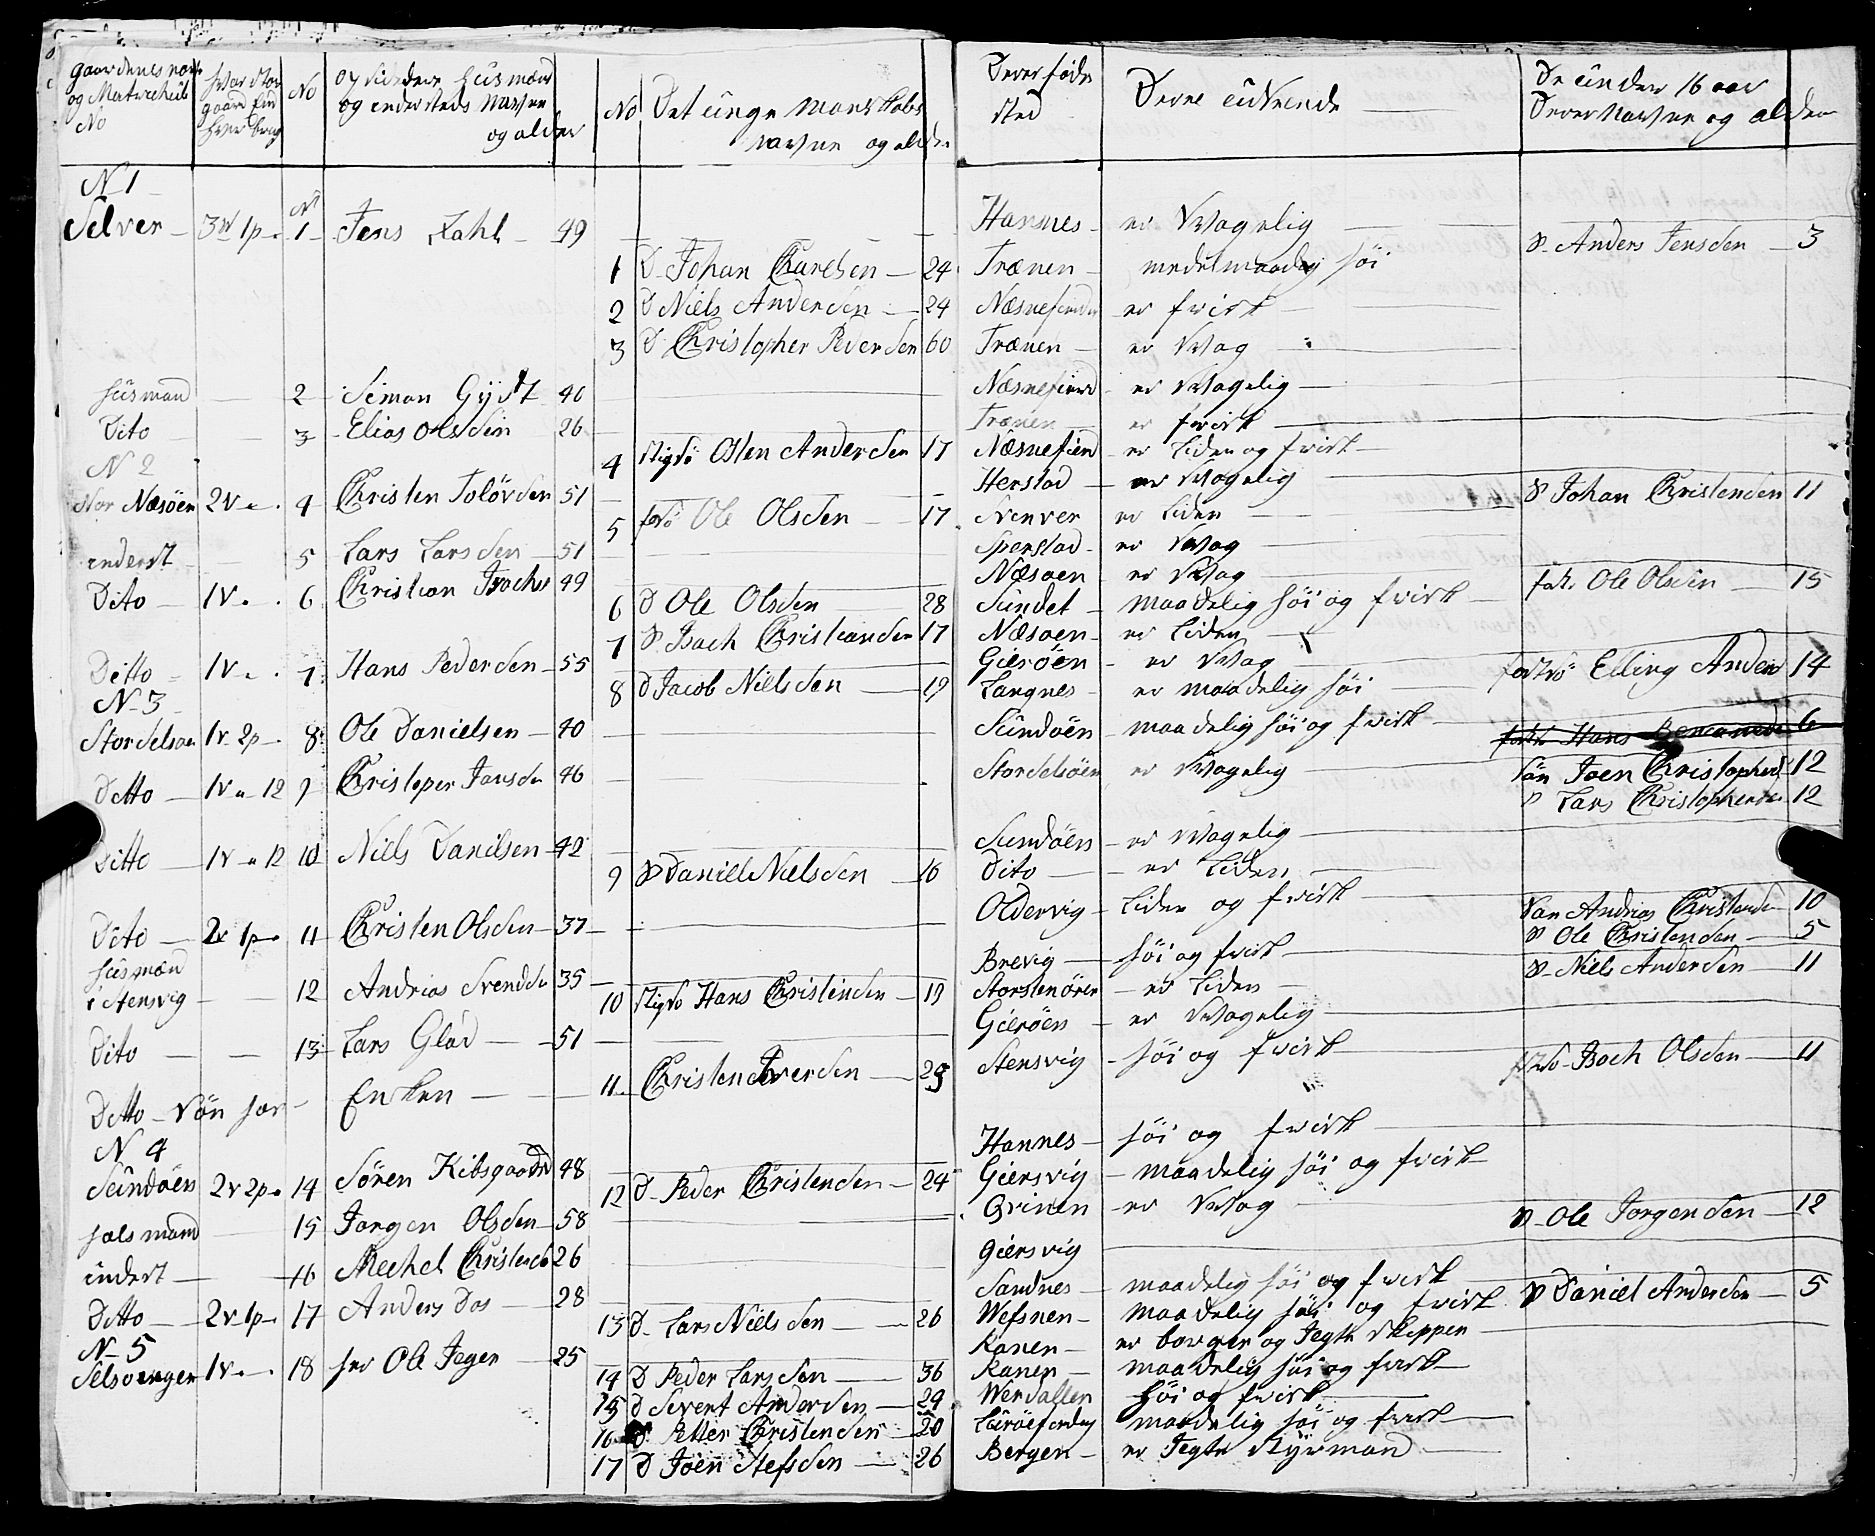 Gaardenes nafn og Matricheil No | hvor Stor gaard En hver brug | No | opsiddere Husmænd og indersteds Nafne og alder | No | Det unge Mandskabs nafne og alder | Deres føde sted | Deres Udseende | De under 16 aar Deres Nafne og alder
N 1
Selver 3 W 1 p No 1 Jens Zahl 49 Hannes er Swagelig S. Anders Jensen 3
1 D Johan Carelsen 24 Trænen medelmaadig høi
2 D Niels Andersen 24 Næsnefiord er frisk
3 D Christopher Pedersen 60 Trænen er Swag
Husmand 2 Simon Gydt 40 Næsnefiord er Swagelig
Dito 3 Elias Olsen 26 Trænen er frisk
4 Stigsø Osten Andersen 17 Næsnefiord er Liden og frisk
N 2
Stor Næsøen 2 V 4 Christen Toløvsen 51 Herstad er Swagelig S Johan Christensen 11
5 Ole Olsen 17 Svenver er Liden
inderst 5 Lars Larsen 51 Sperstad er Swag
Dito 1 V 6 Christian Isachs 49 Næsoen er Swag Ole Olsen 15
6 D Ole Olsen 28 Sundet maadelig høi og frisk
7 S Isach Christiansen 17 Næsoen er Liden
Ditto 1 V 7 Hans Pedersen 55 Gierøen er Swag Elling Anders 14
8 D Jacob Nielsen 19 Langnes er maadelig høi
N 3
Stor Selsøen 1 V 2 p 8 Ole Danielsen 40 Sundøen maadelig høi og frisk Hans 6
Ditto 1 V 12 9 Christoper Jansen 46 Stor Selsøen er Swagelig Søn Joen Christophers 12
S Lars Christophersen 12
Ditto 1 V 12 10 Niels Danilsen 42 Sundøen er Swagelig
9 S Daniel Nielsen 16 Dito er Liden
Dito 2 V 1 p 11 Christen Olsen 37 Oldervig Liden og frisk Søn Andrias Christensen 10
S Ole Christensen 5
Husmæn i Stensvig 12 Andrias Svendsen 35 Brevig høi og frisk S Niels Andersen 11
10 Stigsø Hans Christensen 19 Storstenören er Liden
Dito 13 Lars Glad 51 Gierøen er Swagelig
11 Christen Iversen 25 Stensvig høi og frisk Isach Olsen 11
Ditto Søn hos Enken
N 4
Sundøen 2 V 2 p 14 Sören Kibsgaard 48 Hannes høi og frisk
12 D Peder Christensen 24 Giersvig maadelig høi og frisk
Halsmand 15 Jorgen Olsen 58 Qvinen er Swag S Ole Jorgensen 12
indert 16 Mechel Christens 26 Giersvig
Ditto 2 V 1 p 17 Anders Dos 28 Sandnes maadelig høi og frisk S Daniel Andersen 5
13 D Lars Nielsen 26 Wefsnen maadelig høi og frisk
N 5
Selsvengen 1 V 18 her Ole Jeger 25 Ranen er borger og Jegte Skipper
14 D Peder Larsen 36 Ranen maadelig høi og frisk
15 D Sivert Andersen 29 Werdallen høi og frisk
16 D Petter Christensen 20 maadelig høi og frisk
17 D Joen Stefsen 26 Bergen er Jegte Styrmand